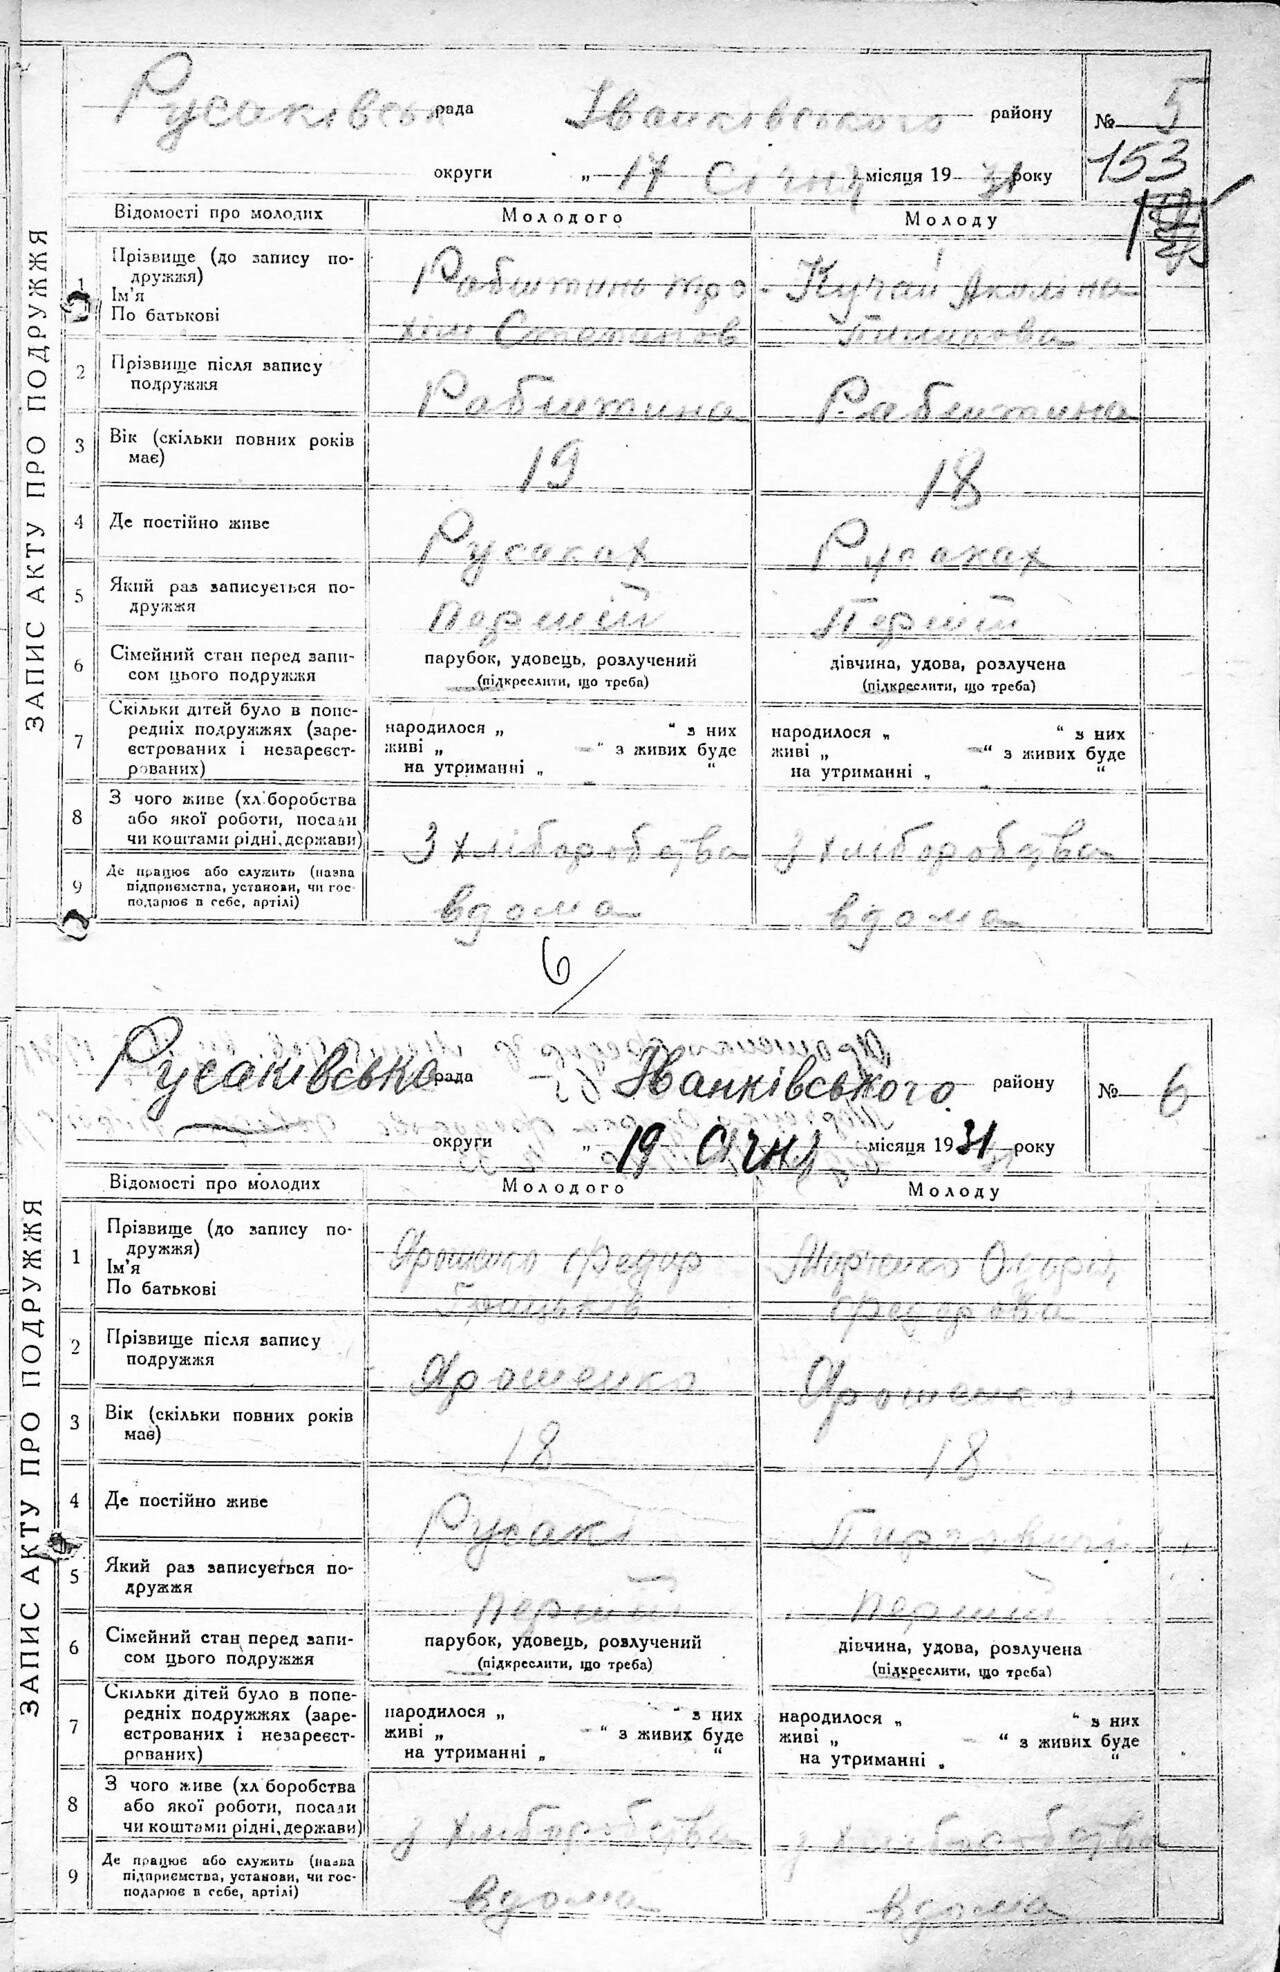 ЗАПИС АКТУ ПРО ПОДРУЖЖЯ
Русаківськ рада Іванківського району № 5
округи „ 17 Січня місяця 19 31 року 153
Відомості про молодих Молодого Молоду
1 Прізвище (до запису по-
дружжя)
Ім'я
По батькові
Рабштина Тро-
хім Степанов
Кучай Акиліна
Пилипова
2 Прізвище після запису
подружжя
Рабштина Рабштина
3 Вік (скільки повних років
має)
19 18
4 Де постійно живе Русаках Русаках
5 Який раз записується по-
дружжя
Перший Перший
6 Сімейний стан перед запи-
сом цього подружжя
парубок, удовець, розлучений
(підкреслити, що треба)
дівчина, удова, розлучена
(підкреслити, що треба)
7 Скільки дітей було в попе-
редніх подружжях (заре-
єстрованих і незареєст-
рованих)
народилося „ “ з них
живі „ — “ з живих буде
на утриманні „ “
народилося „ “ з них
живі „ — “ з живих буде
на утриманні „ “
8 З чого живе (хл боробства
або якої роботи, посади
чи коштами рідні, держави)
З хліборобства з хліборобства
9 Де працює або служить (назва
підприємства, установи, чи гос-
подарює в себе, артілі)
вдома вдома
6/
ЗАПИС АКТУ ПРО ПОДРУЖЖЯ
Русаківська рада Іванківського району № 6
округи „ 19 Січня місяця 19 31 року
Відомості про молодих Молодого Молоду
1 Прізвище (до запису по-
дружжя)
Ім'я
По батькові
Ярошенко Федір
Грицьків
Марченко Одарц
Федорова
2 Прізвище після запису
подружжя
Ярошенко Ярошенко
3 Вік (скільки повних років
має)
18 18
4 Де постійно живе Русакі
5 Який раз записується по-
дружжя
Перший Перший
6 Сімейний стан перед запи-
сом цього подружжя
парубок, удовець, розлучений
(підкреслити, що треба)
дівчина, удова, розлучена
(підкреслити, що треба)
7 Скільки дітей було в попе-
редніх подружжях (заре-
єстрованих і незареєст-
рованих)
народилося „ “ з них
живі „ — “ з живих буде
на утриманні „ “
народилося „ “ з них
живі „ — “ з живих буде
на утриманні „ “
8 З чого живе (хл боробства
або якої роботи, посади
чи коштами рідні, держави)
з хліборобства з хліборобства
9 Де працює або служить (назва
підприємства, установи, чи гос-
подарює в себе, артілі)
вдома вдома